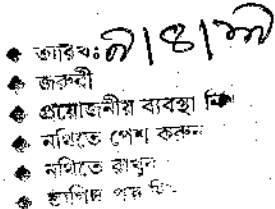 ◆ তারিখঃ
◆ জরুরী
◆ প্রয়োজনীয় ব্যবস্থা নিন
◆ নথিতে পেশ করুন
◆ নথিতে রাখুন
◆ তাগিদ পত্র দিন